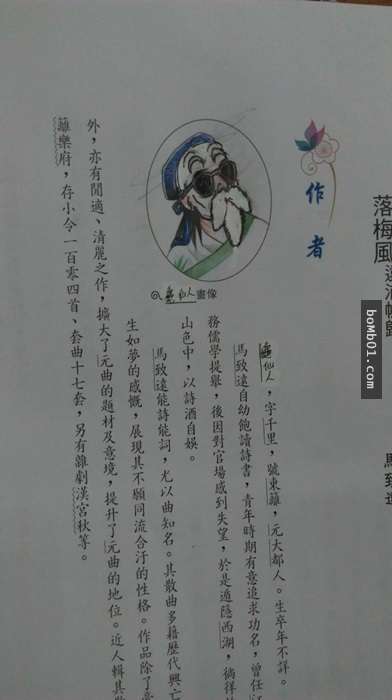 落梅風
馬致
作者
龜仙人畫像
龜仙人，字千里，號東籬，元大都人。生卒年不詳。
馬致遠自幼飽讀詩書，青年時期有意追求功名，曾任
務儒學提舉，後因對官場感到失望，於是遁隱西湖，徜徉
山色中，以詩酒自娛。
馬致遠能詩能詞，尤以曲知名。其散曲多藉歷代興亡
生如夢的感慨，展現其不願同流合汙的性格。作品除了
外，亦有閒適、清麗之作，擴大了元曲的題材及意境，提升了元曲的地位。近人輯其
籬樂府，存小令一百零四首、套曲十七套，另有雜劇漢宮秋等。
boMb01.com